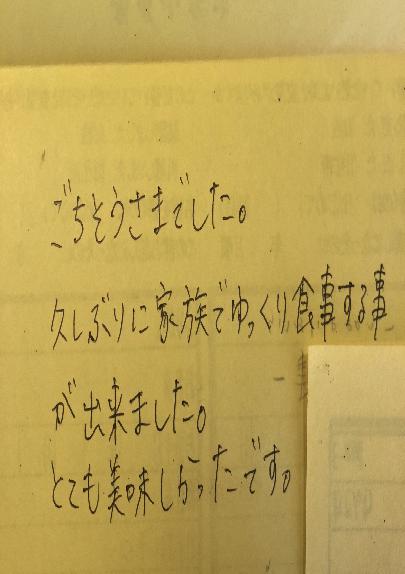 ごちそうさまでした。
久しぶりに家族でゆっくり食事する事
が出来ました。
とても美味しかったです。